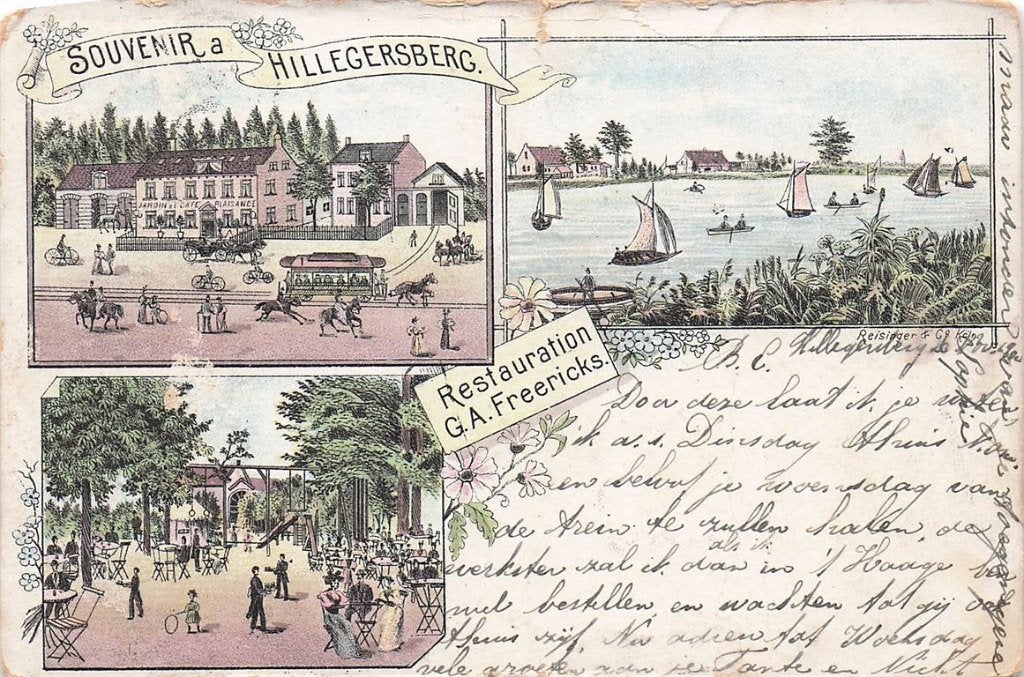 SOUVENIR a HILLEGERSBERG.
JARDIN et CAFÉ PLAISANCE
Reisinger & Co Köln
Restauration
G.A. Freericks.
B. C. Hillegersberg
Door deze laat ik je weten
ik a.s. Dinsdag thuis
en behoef je woensdag van
de trein te zullen halen, de
werkster zal ik dan als ik in 't Haagje ben
bestellen, en wachten tot gij
thuis zijt, Nu adieu tot Woensdag
vele groeten aan je Tante en Nicht